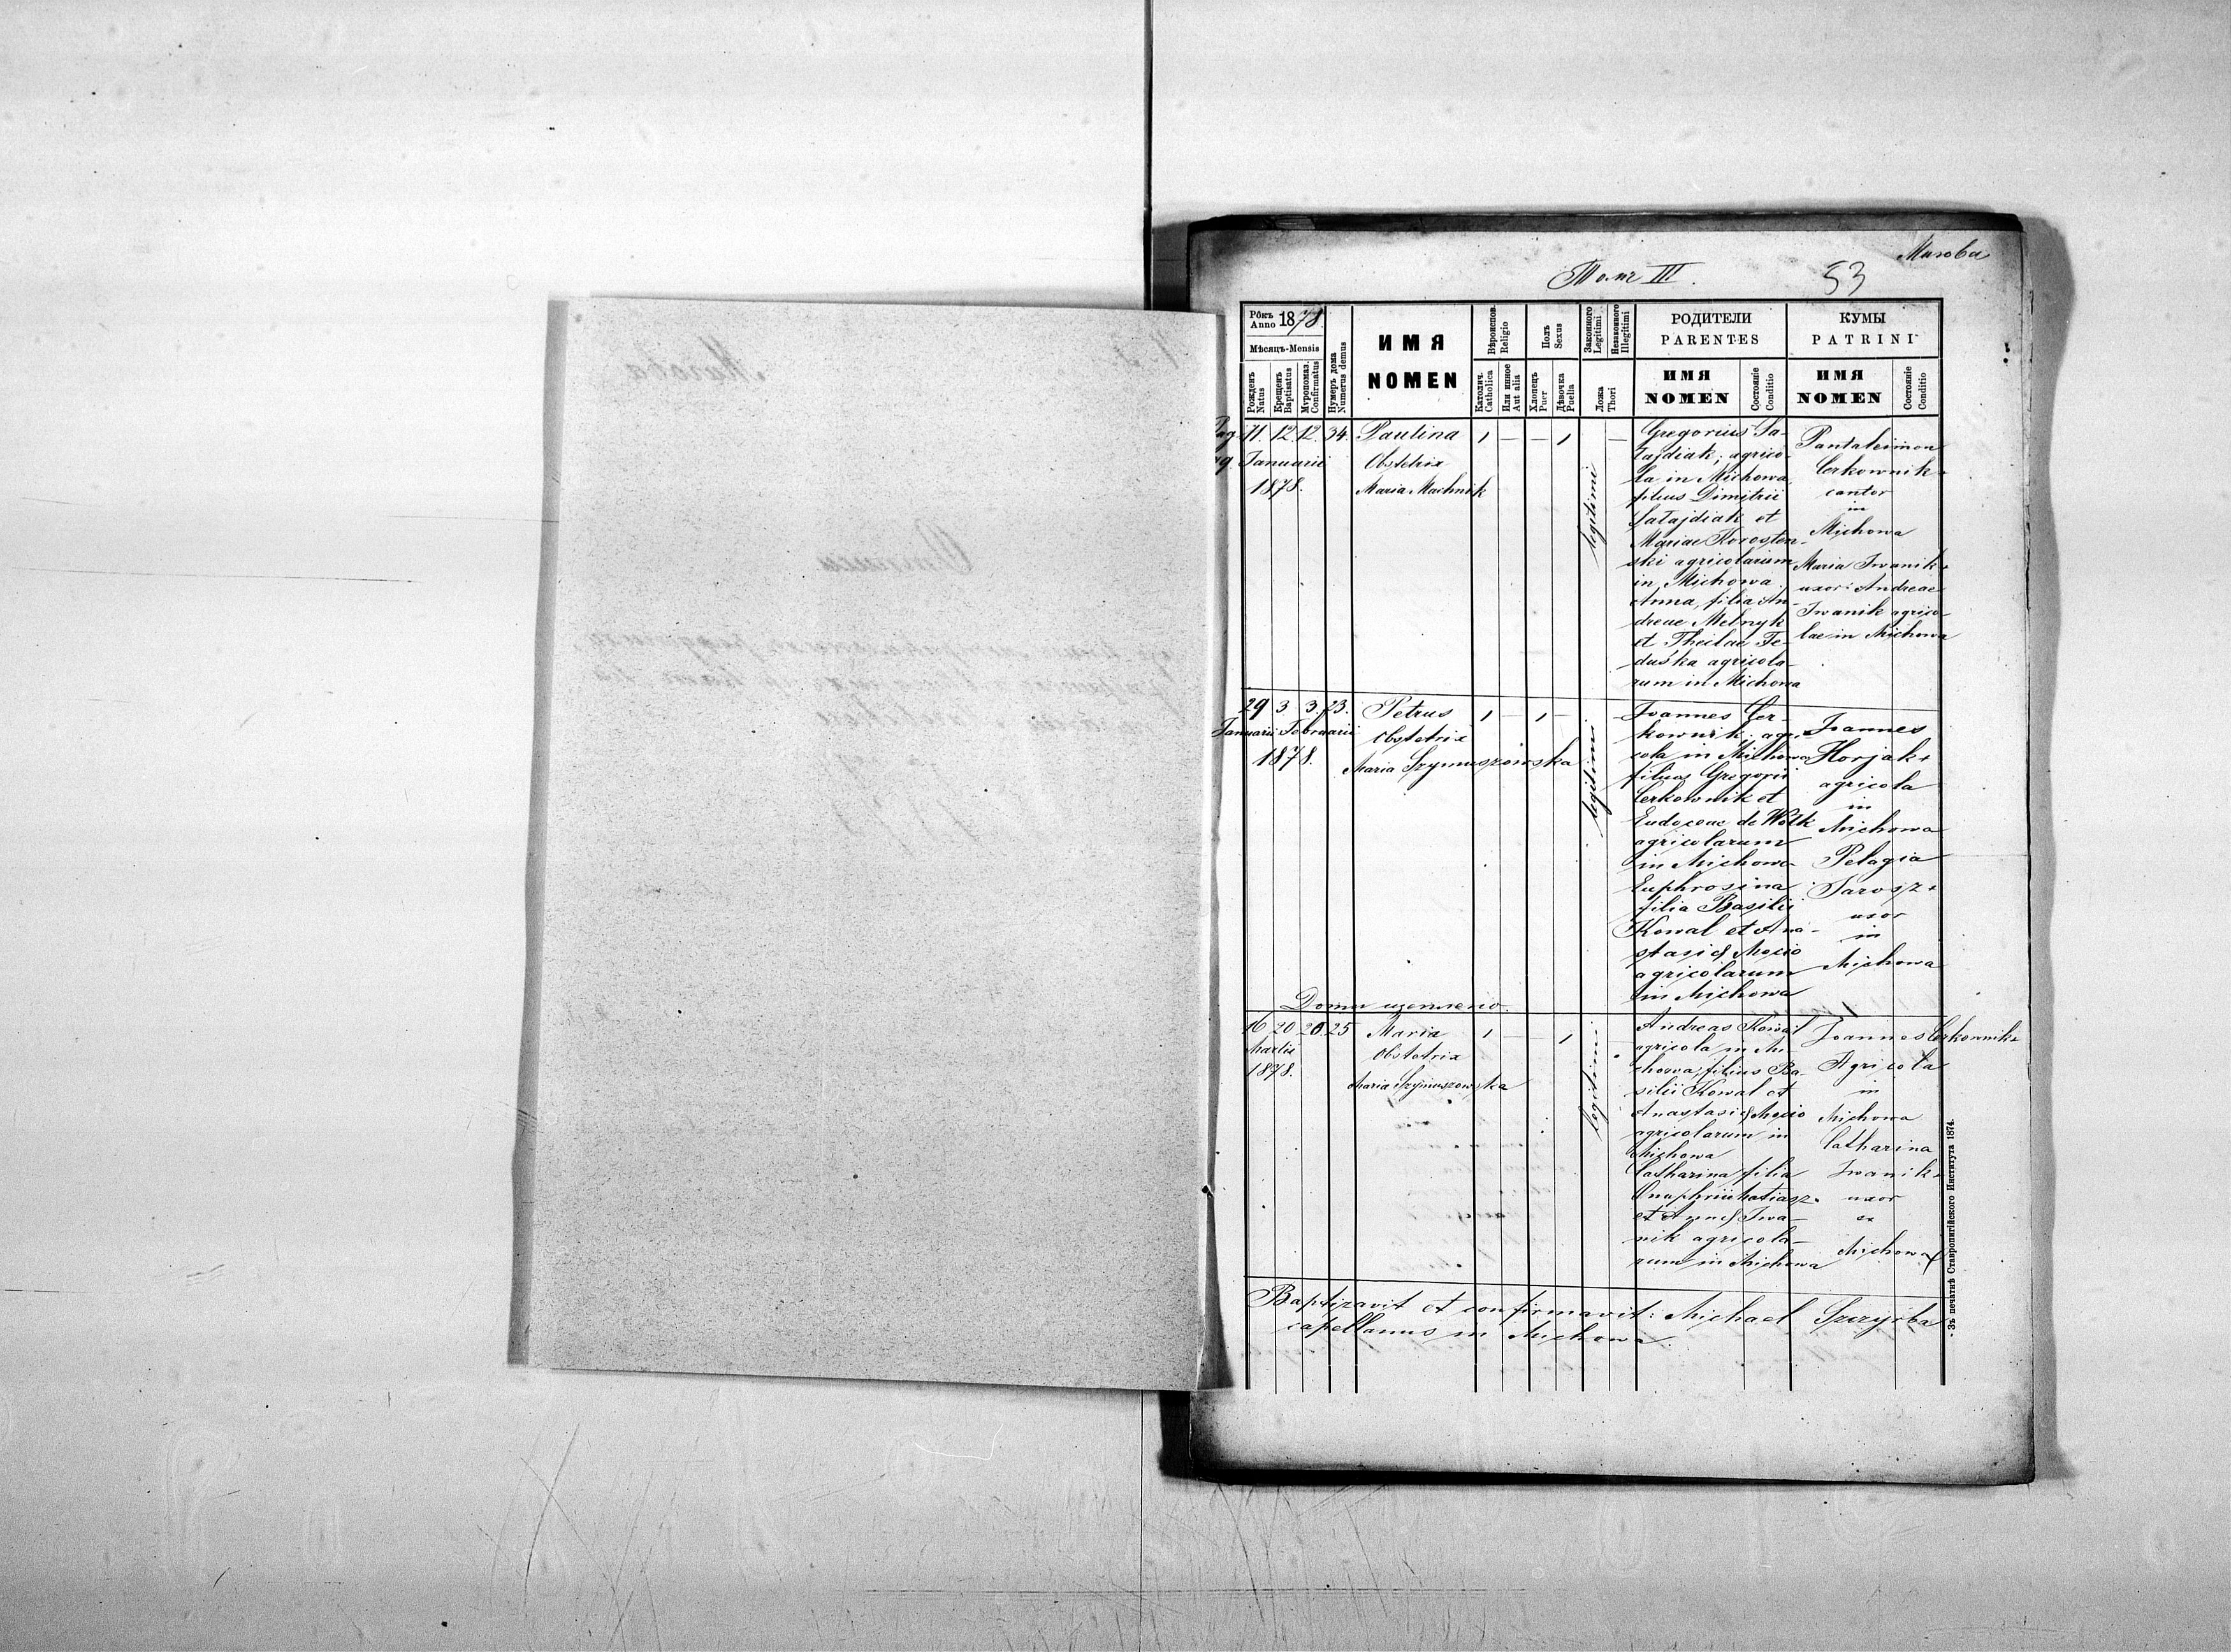 Михова
Томъ III.
53
Рôкъ Anno 1878
Мѣсяцъ-Mensis
Рожденъ Natus
Крещенъ Baptisatus
Мѵропомаз. Confirmatus
Нумеръ дома Numerus domus
ИМЯ
NOMEN
Вѣроиспов. Religio
Католич. Catholica
Или инное Aut alia
Полъ Sexus
Хлопецъ Puer
Дѣвочка Puella
Законного Legitimi
Незаконного Illegitimi
Ложа Thori
РОДИТЕЛИ
PARENTES
ИМЯ
NOMEN
Состояніе Conditio
КУМЫ
PATRINI
ИМЯ
NOMEN
Состояніе Conditio
11. 12. 12. 34.
Januarii
1878.
Paulina
Obstetrix
Maria Machnik
1 — — 1
legitimi
—
Gregorius Sa-
łajdiak, agrico-
la in Michowa
filius Dimitrii
Sałajdiak et
Mariae Korosten-
ski agricolarum
in Michowa
Anna, filia An-
dreae Melnyk
et Theclae Fe-
duśka agricola-
rum in Michowa
Pantaleimon
Cerkownik
cantor
in
Michowa
Maria Iwanik
uxor Andreae
Iwanik agrico-
lae in Michowa
29 3 3. 23.
Januarii Februarii
1878.
Petrus
Obstetrix
Maria Szymuszowska
1 — 1 —
legitimi
—
Joannes Cer-
kownik, agri-
cola in Michowa
filius Gregorii
Cerkownik et
Eudoceae de Wołk
agricolarum
in Michowa
Euphrosina
filia Basilii
Kowal et Ana-
stasiæ Mocio
agricolarum
in Michowa
Joannes
Horjak
agricola
in
Michowa
Pelagia
Jarosz
uxor
in
Michowa
16 20 20 25
Martii
1878.
Maria
Obstetrix
Maria Szymuszowska
1 — 1
legitimi
Andreas Kowal
agricola in Mi-
chowa, filius Ba-
silii Kowal et
Anastasiæ Mocio
agricolarum in
Michowa
Catharina filia
Onuphrii Matiasz
et Annæ Iwa-
nik agricola-
rum in Michowa
Joannes Cerkownik
Agricola
in
Michowa
Catharina
Iwanik
uxor
ex
Michowa
Baptizavit et confirmavit: Michael Szczyrba
capellanus in Michowa
Зъ печатнѣ Ставропигійского Института 1874.